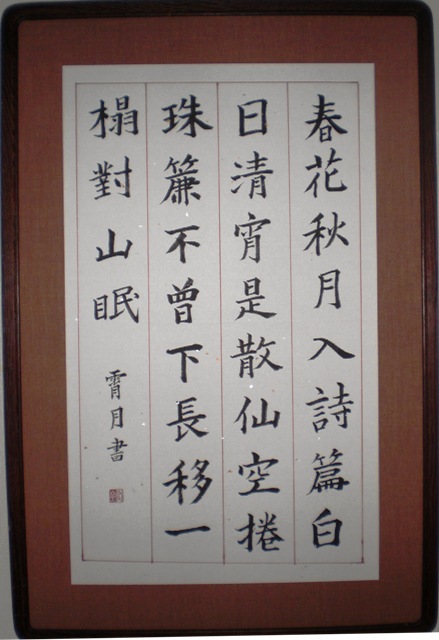 春花秋月入詩篇白
日清宵是散仙空捲
珠簾不曾下長移一
榻對山眠
霄月書